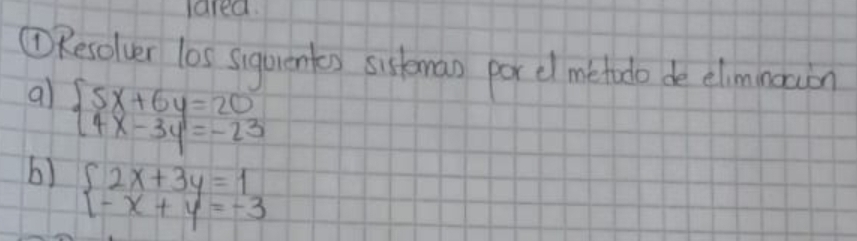 Tarea.
① Resolver los siguientes sistemas por el método de eliminación
a) { 5x + 6y = 20
4x - 3y = -23
b) { 2x + 3y = 1
-x + y = -3